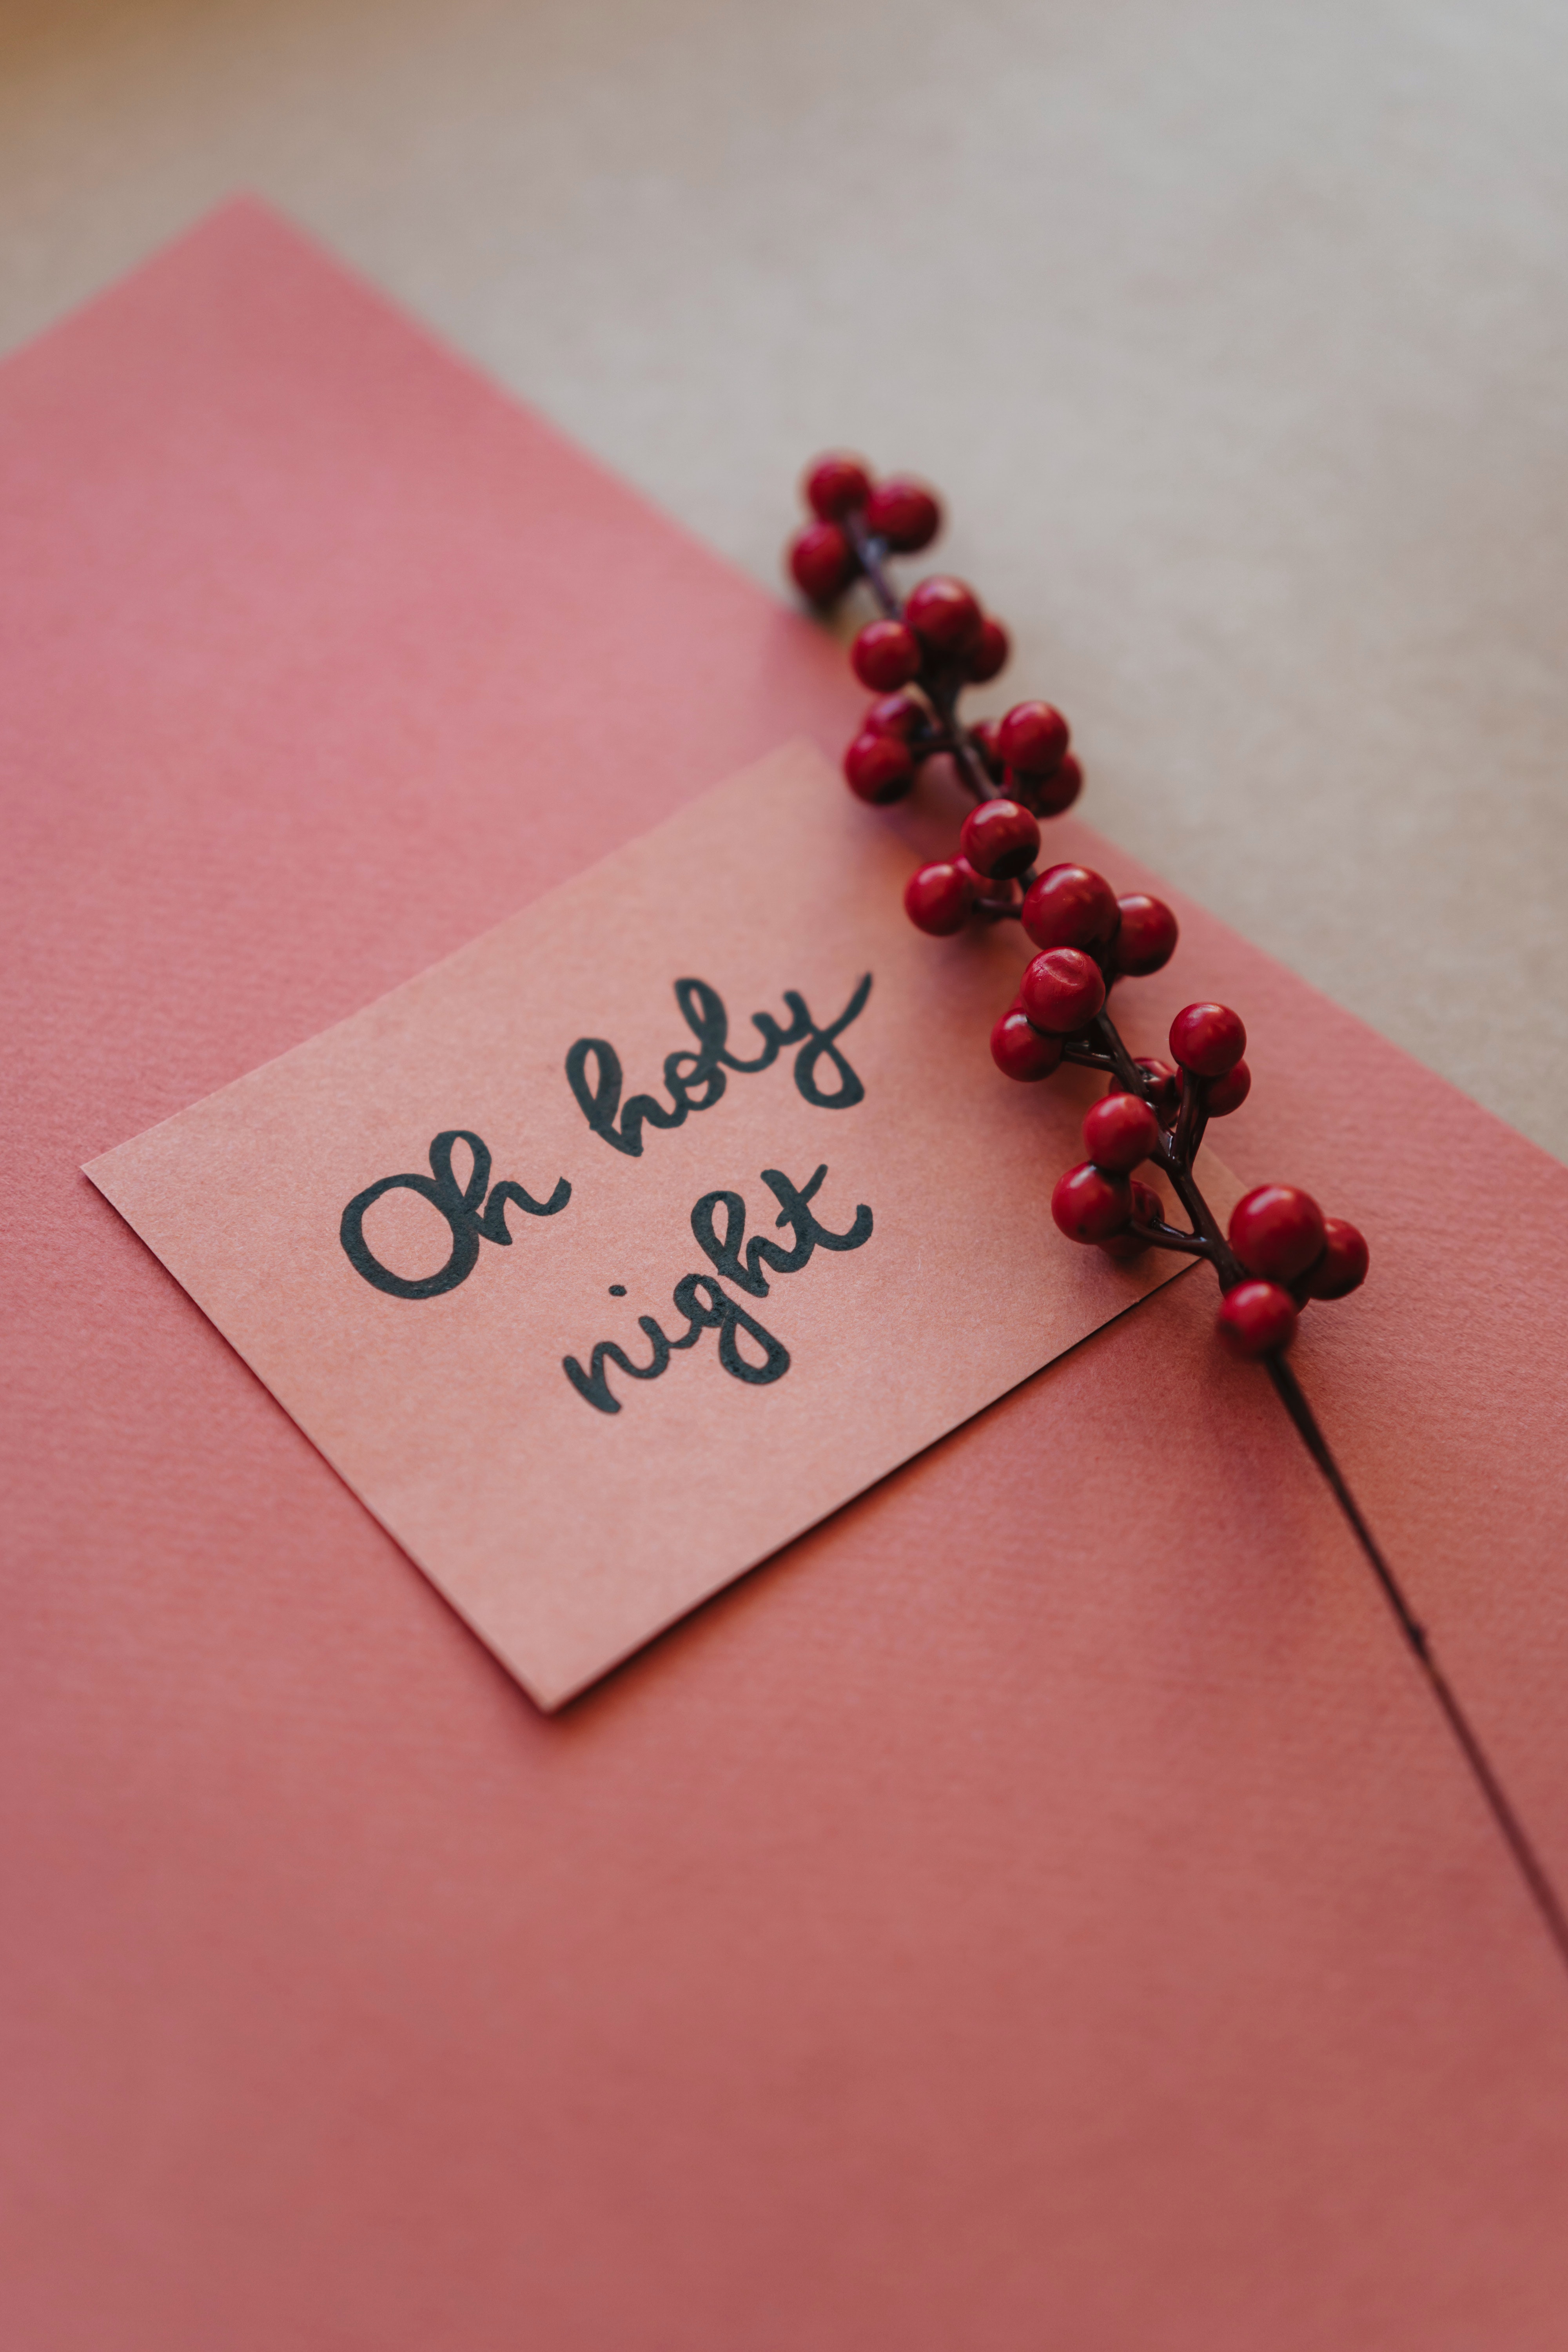 Oh holy
night